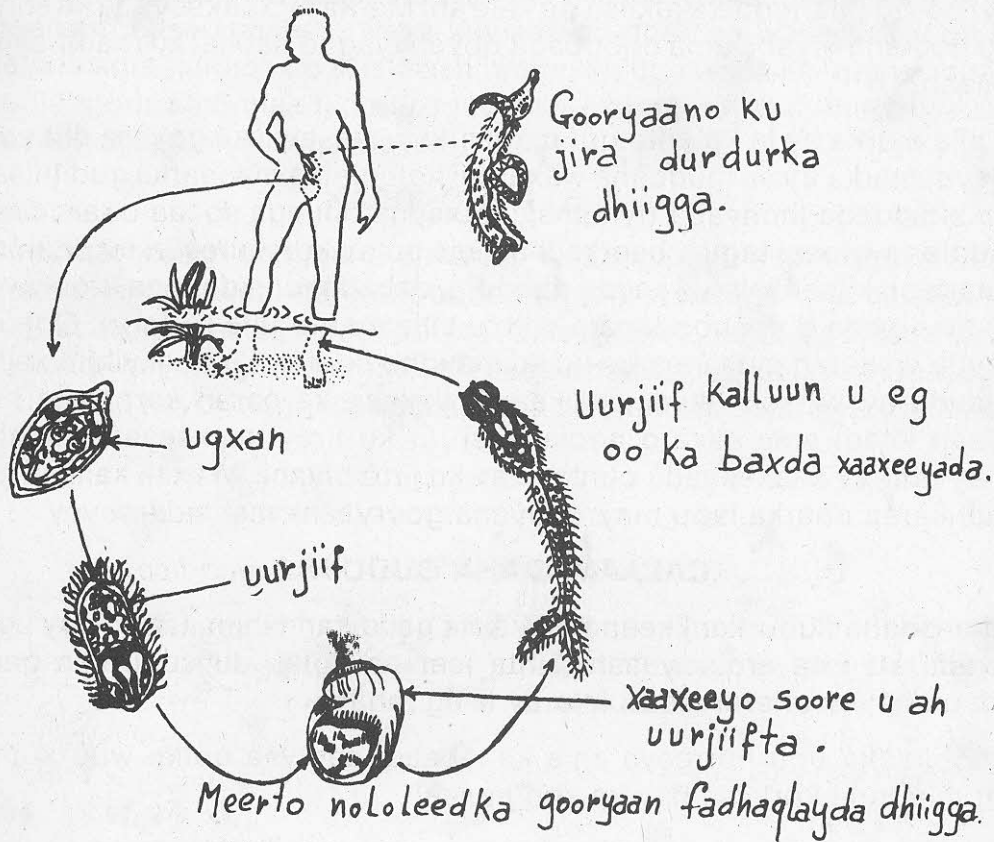 Gooryaano ku
jira durdurka
dhiigga.
Uurjiif kalluun u eg
oo ka baxda xaaxeeyada.
ugxan
uurjiif
xaaxeeyo soore u ah
uurjiifta.
Meerto nololeedka gooryaan fadhaqlayda dhiigga.